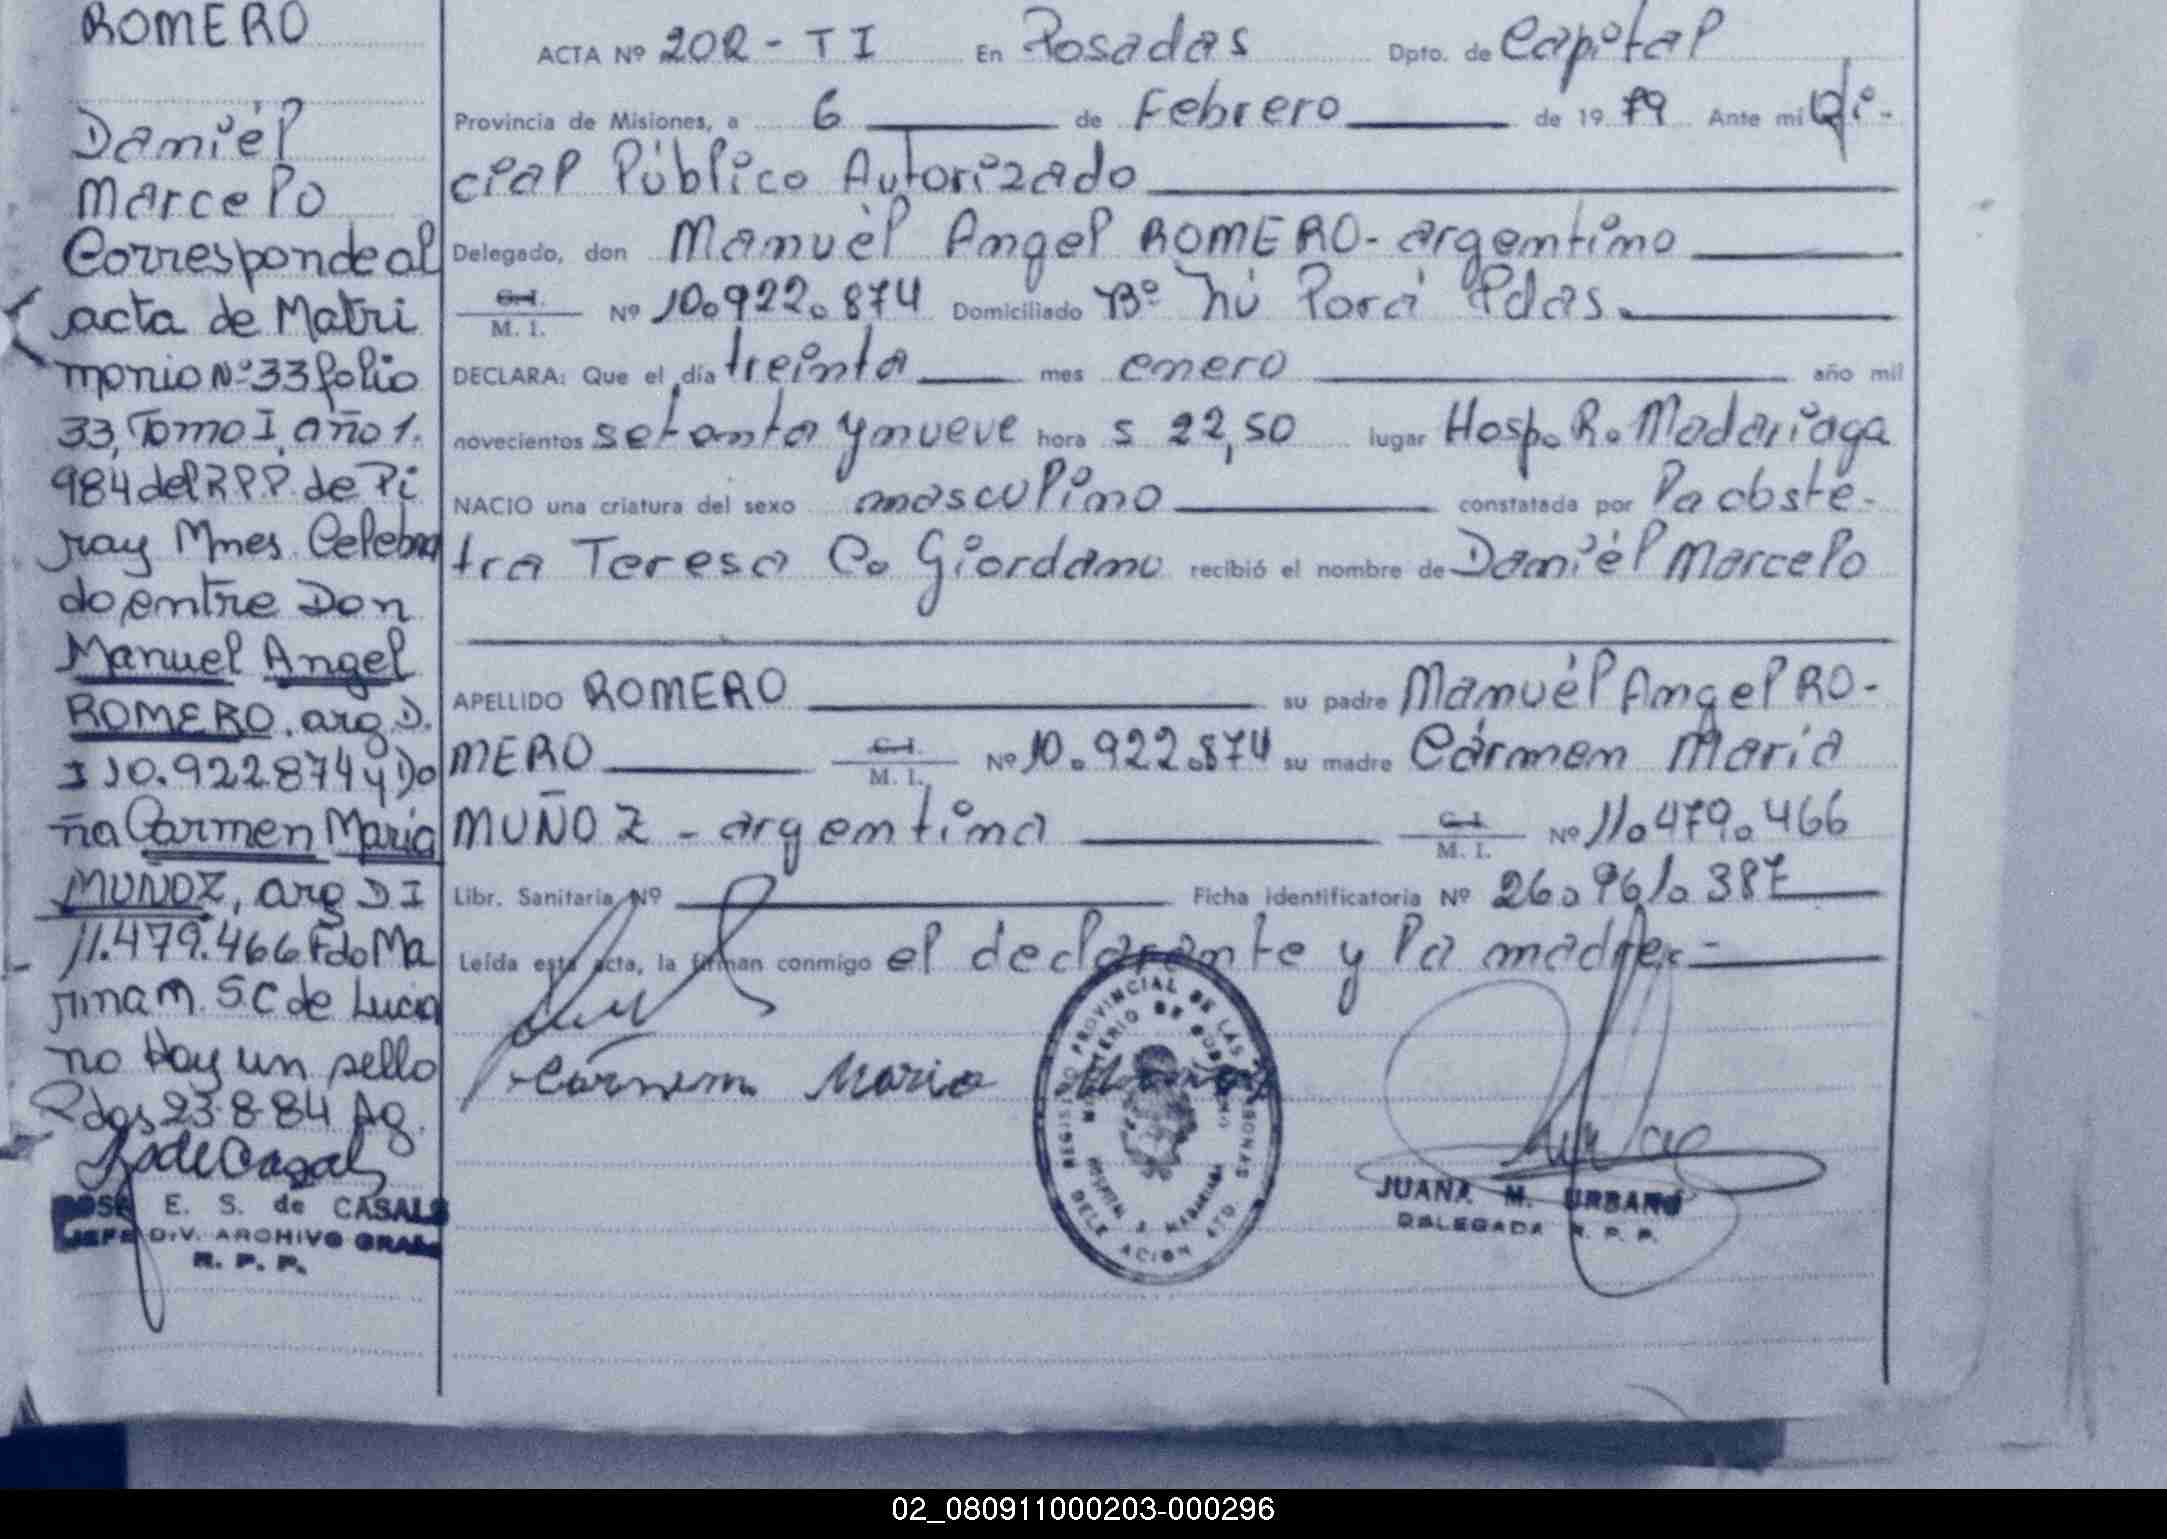 ROMERO
Daniel
Marcelo
Corresponde al
acta de Matri
monio Nº 33 folio
33, Tomo I, año 1.
984 del R.P.P. de Pi
ray Mnes. Celebra
do, entre Don
Manuel Angel
ROMERO, arg. D.
I 10.922.874 y Do
ña Carmen Maria
MUÑOZ, arg D I
11.479.466 Fdo Ma
rina M. S.C de Lucia
no Hay un sello
Pdas 23-8-84 Ag.
E. S. de CASALS
JEFE DIV. ARCHIVO GRAL.
R. P. P.
ACTA Nº 202 - T I En Posadas Dpto. de Capital
Provincia de Misiones, a 6 de Febrero de 1979 Ante mi Ofi-
cial Público Autorizado
Delegado, don Manuél Angel ROMERO - argentino
C.I. / M. I. Nº 10.922.874 Domiciliado Bº Ñú Porá Pdas.
DECLARA: Que el día treinta mes enero año mil
novecientos setenta y nueve hora s 22,50 lugar Hosp. R. Madariaga
NACIO una criatura del sexo masculino constatada por la obsté-
tra Teresa C. Giordano recibió el nombre de Daniél Marcelo
APELLIDO ROMERO su padre Manuél Angel RO-
MERO C.I. / M. I. Nº 10.922.874 su madre Cármen Maria
MUÑOZ - argentina C.I. / M. I. Nº 11.479.466
Libr. Sanitaria Nº Ficha identificatoria Nº 26.961.387
Leída esta acta, la firman conmigo el declarante y la madre.-
Cármen Maria Muñoz
REGISTRO PROVINCIAL DE LAS PERSONAS
MINISTERIO DE GOBIERNO
HOSPITAL R. MADARIAGA
DELEGACION
JUANA M. URBANO
DELEGADA R. P. P.
02_080911000203-000296